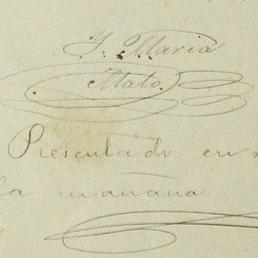 J. Maria
Mato.
Presentado en
la mañana